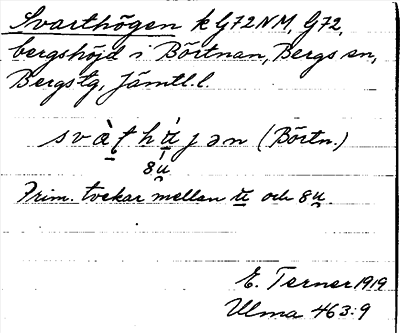 Svarthögen k G72NM, G72,
bergshöjd i Börtnan, Bergs sn,
Bergs tg, Jämtl.l.
svàṭhújən (Börtn.)
8ú
Prim. tvekar mellan u och 8u.
E. Terner 1919
Ulma 463:9